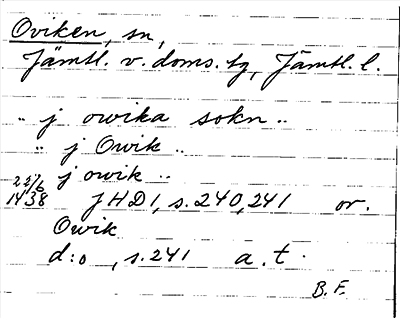 Oviken, sn,
Jämtl. v. doms. tg, Jämtl. l.
.. j owika sokn ..
.. j Owik ..
j owik ..
22/6 1438 JHD 1, s. 240, 241 or.
Owik
d:o , s. 241 a. t.
B. F.